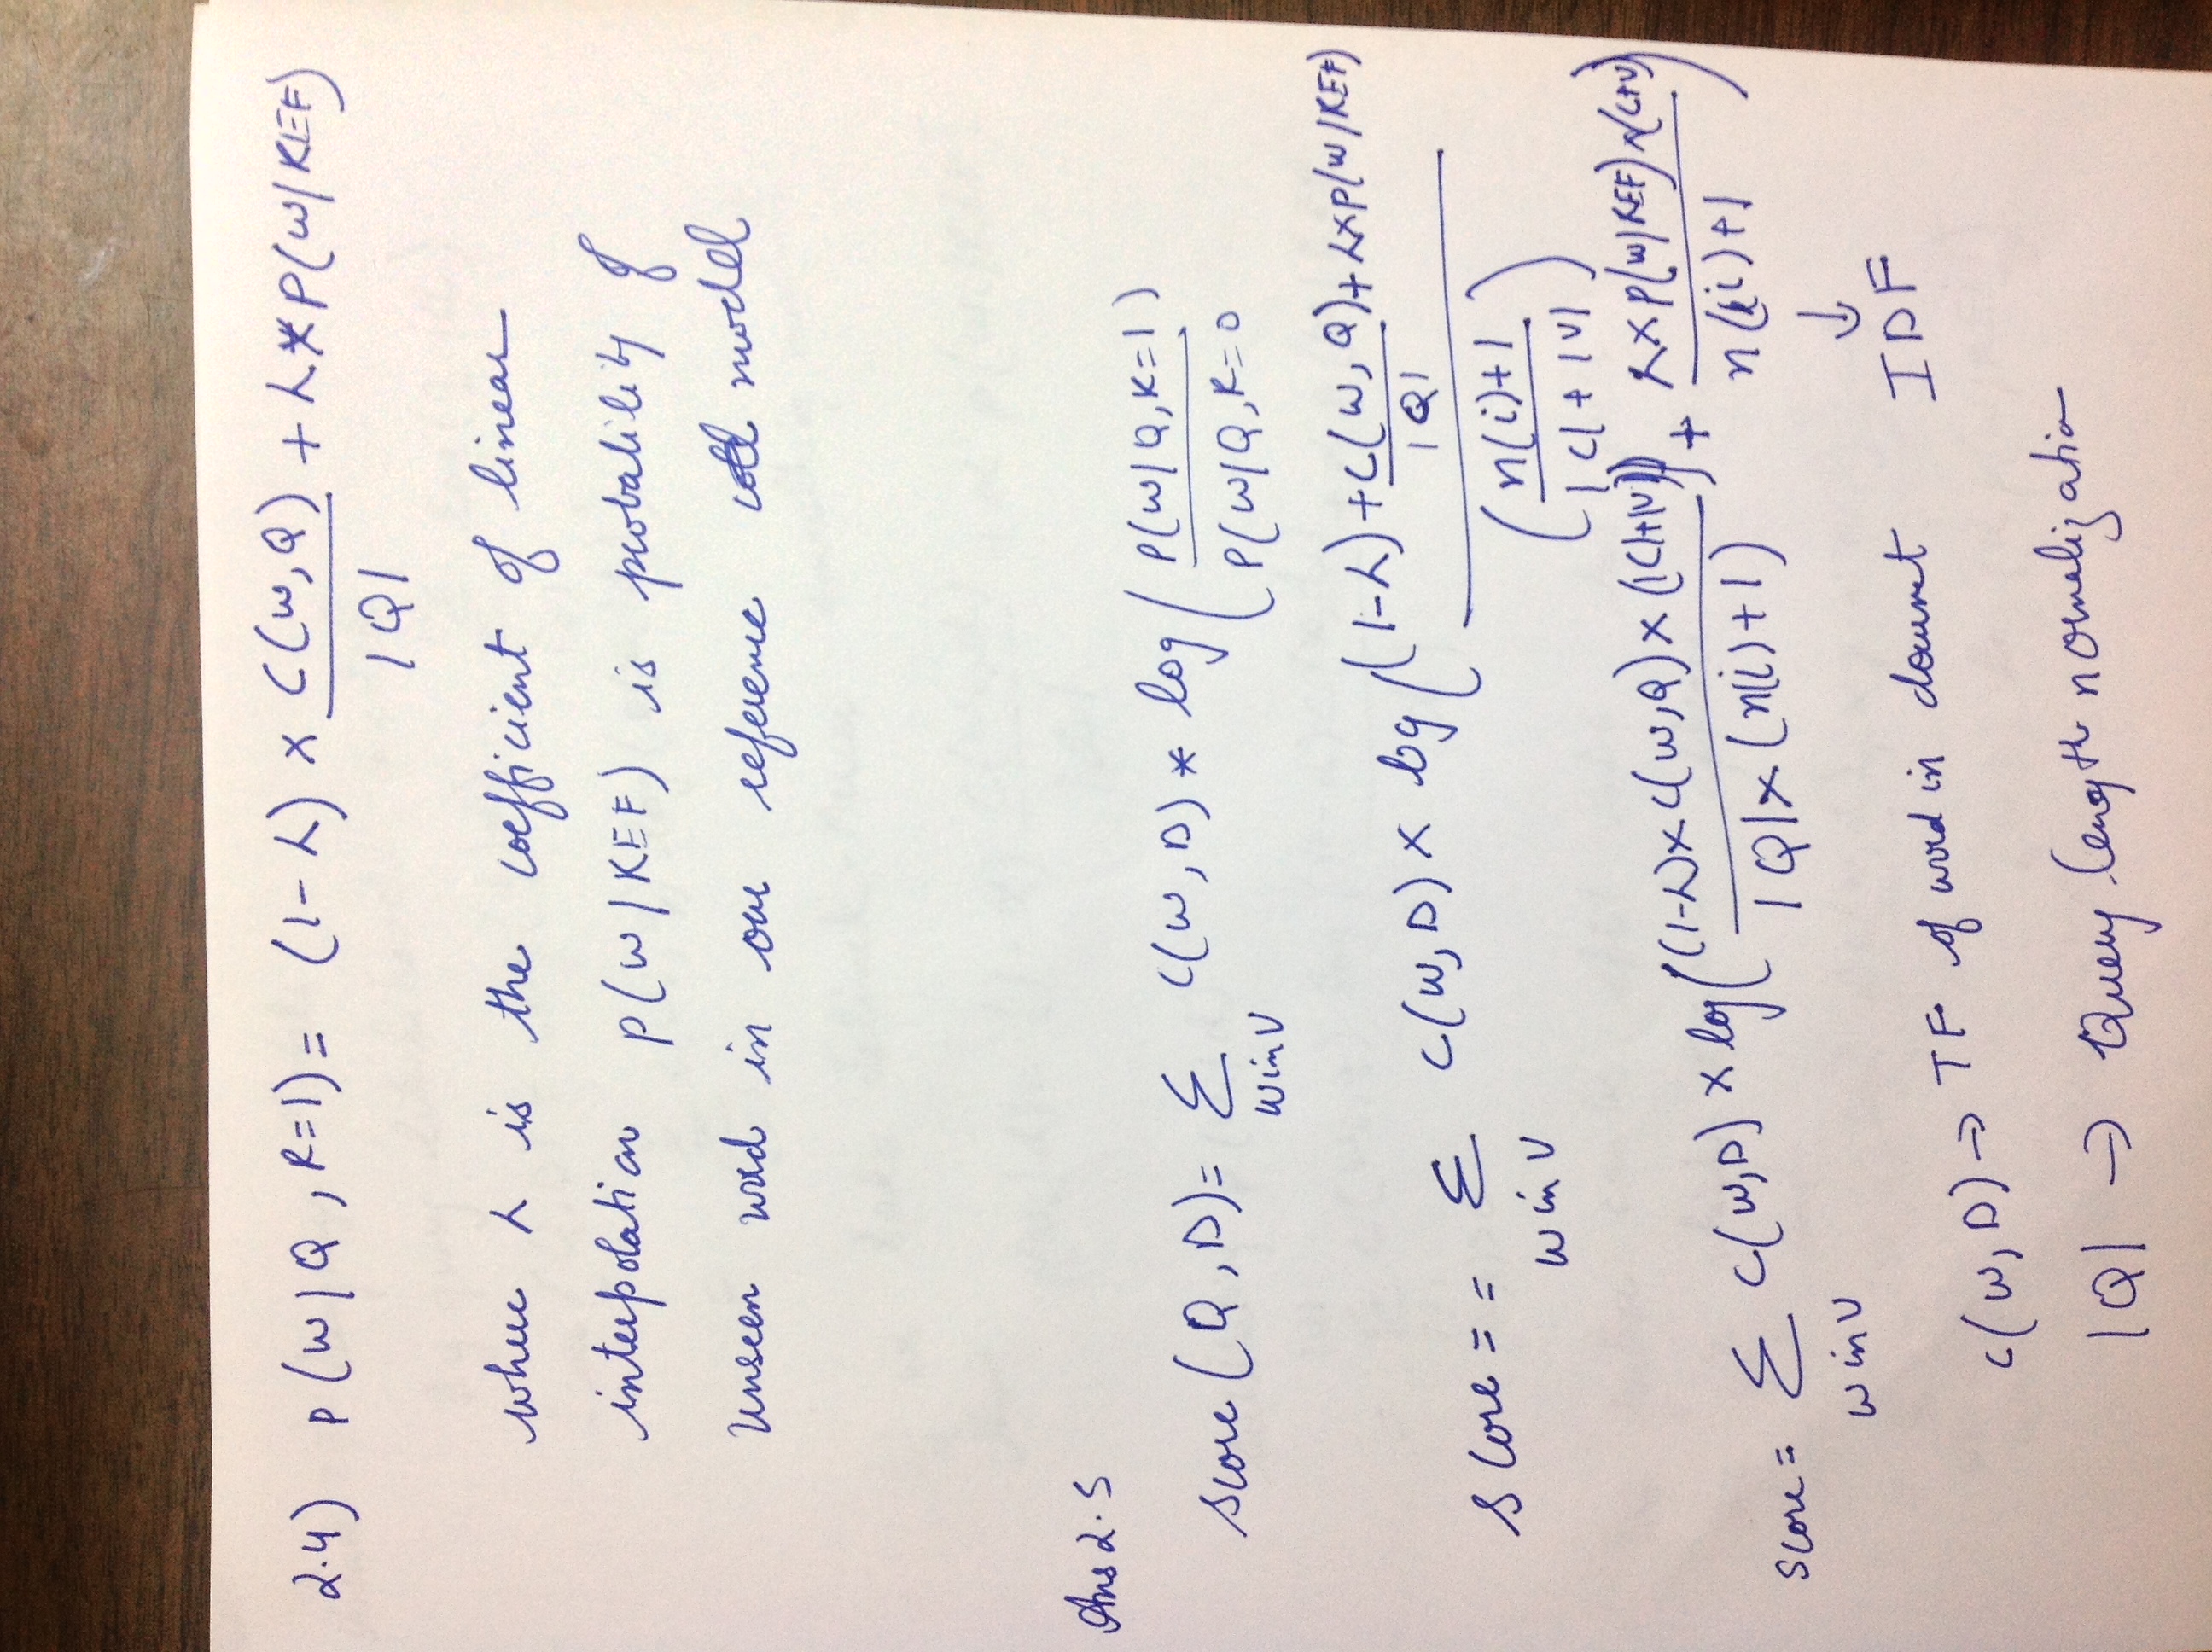 2.4) P(W|Q, R=1) = (1-λ) × C(W,Q)/|Q| + λ * P(W/REF)
where λ is the coefficient of linear
interpolation P(W/REF) is probability of
unseen word in our reference model
Ans 2.5
Score(Q,D) = Σ C(W,D) * log( P(W|Q,R=1) / P(W|Q,R=0
W in V
Score = = Σ C(W,D) × log( (1-λ) + C(W,Q)/|Q| + λ×P(W/REF) / ( n(i)+1 / |C|+|V| )
W in V
Score = Σ C(W,D) × log( ((1-λ)×C(W,Q)×(|C|+|V|)) / |Q|×(n(i)+1) + λ×P(W/REF)×(C+V) / n(i)+1 )
W in V
↓
C(W,D) → TF of word in documet IDF
|Q| → Query length normalization